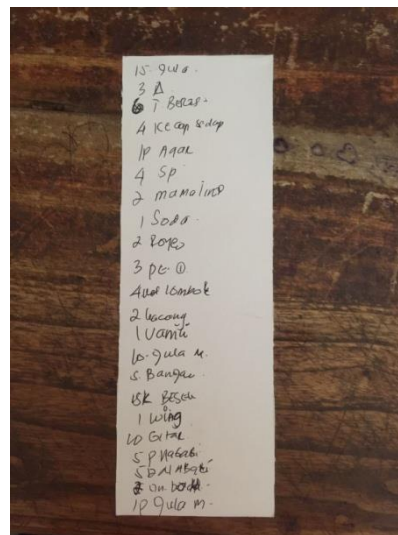 15. gula.
3 Δ.
6 T Beras.
4 Kecap sedap
1P Agar
4 SP
2 mamalime
1 Soda.
2 Royco
3 PK ①
4 lombok
2 kacang
1 Vanili
10. gula m.
5. Bangau
15K BESAR
1 Wing
10
5 P
5
1P gula m.